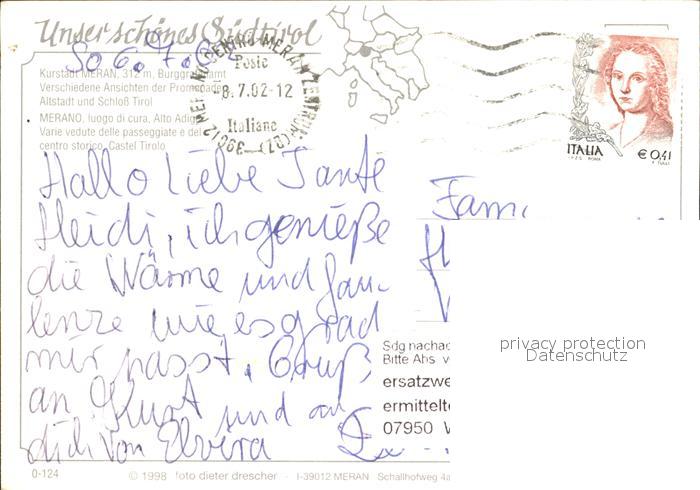 Unser schönes Südtirol
So 6.7.
Kurstadt MERAN, 312 m, Burggrafenamt
Verschiedene Ansichten der Promenade
Altstadt und Schloß Tirol
MERANO, luogo di cura, Alto Adige
Varie vedute delle passeggiate e del
centro storico, Castel Tirolo
Poste
-8.7.02-12
Italiane
39012 MERANO CENTRO MERAN ZENTRUM (BZ)
ITALIA
€ 0,41
Hallo Liebe Tante
Heidi, ich genieße
die Wärme und fau-
lenze wie es grad
mir passt. Gruß
an Kurt und an
dich von Elvira
Fam
Sdg nachae
Bitte Abs v
ersatzwe
ermittelte
07950 W
privacy protection
Datenschutz
0-124
© 1998 foto dieter drescher - I-39012 MERAN Schallhofweg 4a